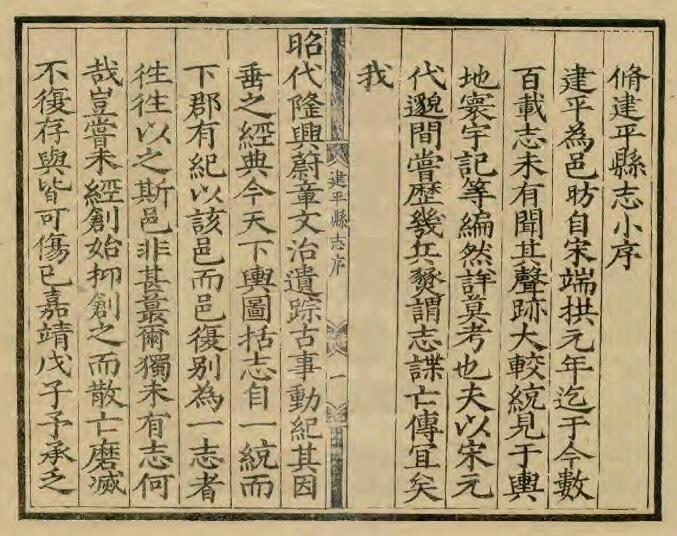 脩建平縣志小序
建平為邑昉自宋端拱元年迄于今數
百載志未有聞其聲跡大較統見于輿
地寰宇記等編然詳莫考也夫以宋元
代邈間嘗歷幾兵燹謂志諜亡傳宜矣
我
建平縣志序
一
昭代隆興蔚章文治遺踪古事動紀其因
垂之經典今天下輿圖括志自一統而
下郡有紀以該邑而邑復别為一志者
徃徃以之斯邑非甚蕞爾獨未有志何
哉豈嘗未經創始抑創之而散亡磨滅
不復存與皆可傷已嘉靖戊子予承乏